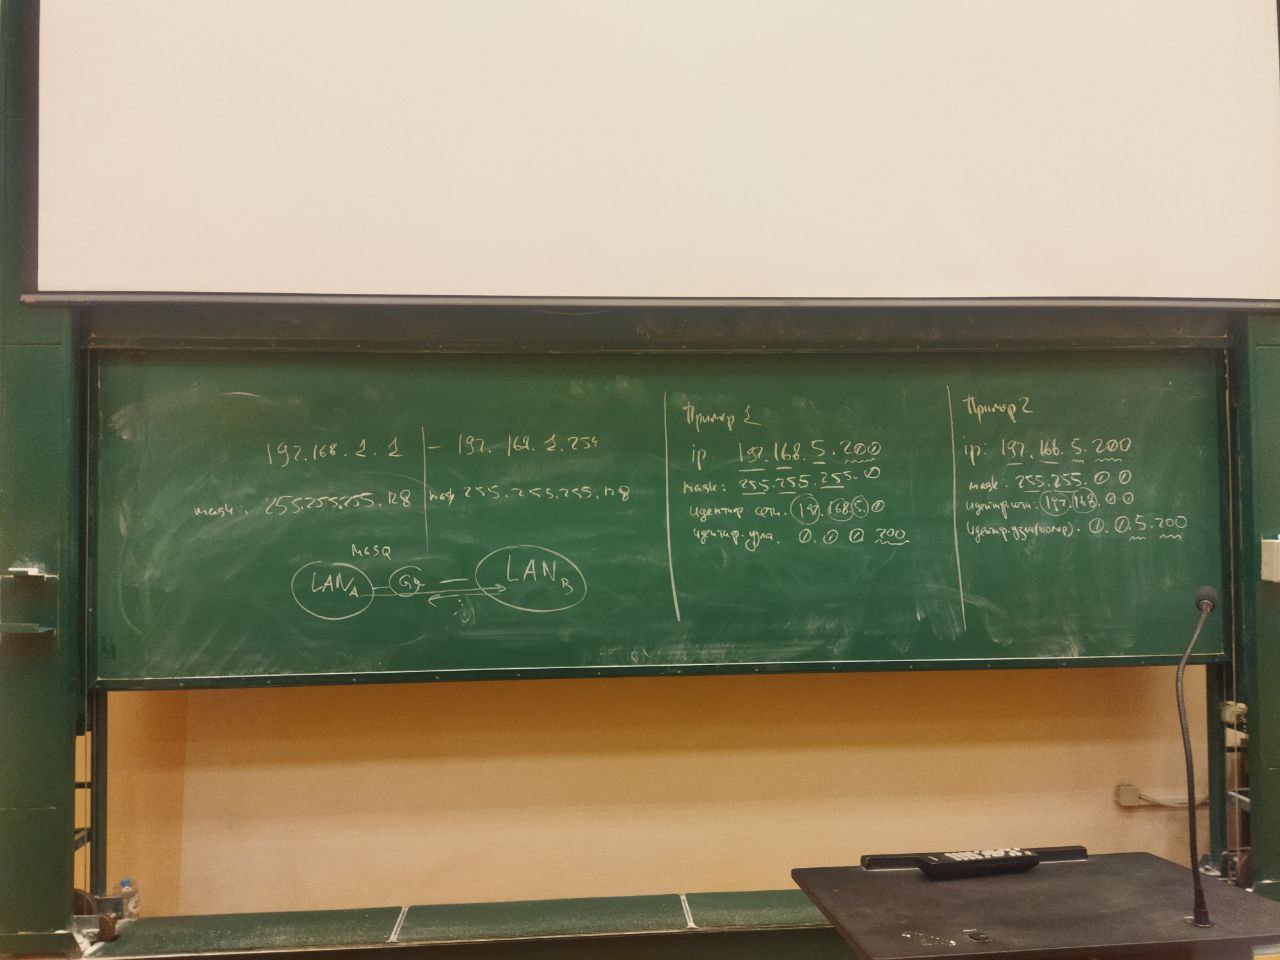 192.168.1.1 - 192.168.1.254
mask: 255.255.255.128 mask 255.255.255.128
MASQ
LAN A GW LAN B
Пример 1
ip: 192.168.5.200
mask: 255.255.255.0
идентиф. сети: 192.168.5.0
идентиф. узла: 0.0.0 200
Пример 2
ip: 192.168.5.200
mask: 255.255.0 0
идентиф. сети: 192.168.0 0
идентиф. узла (номер): 0.0.5.200